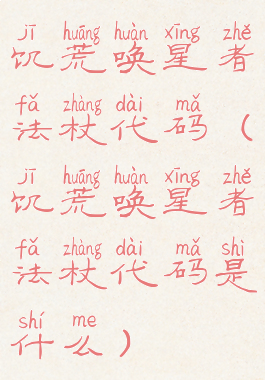 jī huāng huàn xīng zhě
饥荒唤星者
fǎ zhàng dài mǎ
法杖代码（
jī huāng huàn xīng zhě
饥荒唤星者
fǎ zhàng dài mǎ shì
法杖代码是
shí me
什么）